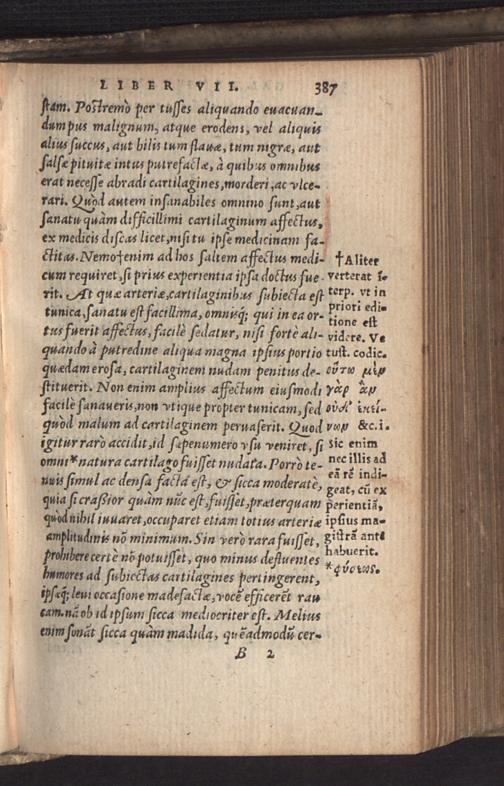 LIBER VII. 387
stam. Postremò per tusses aliquando euacuan_
dum pus malignum, atque erodens, vel aliquis
alius succus, aut bilis tum flauæ, tum nigræ, aut
salsæ pituitæ intus putrefactæ, à quibus omnibus
erat necesse abradi cartilagines, morderi, ac vlce-
rari. Quòd autem insanabiles omnino sunt, aut
sanatu quàm difficillimi cartilaginum affectus,
ex medicis discas licet, nisi tu ipse medicinam fa-
ctitas. Nemo†enim ad hos saltem affectus medi-
cum requiret, si prius experientia ipsa doctus fue
rit. At quæ arteriæ, cartilaginibus subiecta est
tunica, sanatu est facillima, omnisq; qui in ea or-
tus fuerit affectus, facilè sedatur, nisi fortè ali-
quando à putredine aliqua magna ipsius portio
quædam erosa, cartilaginem nudam penitus de-
stituerit. Non enim amplius affectum eiusmodi
facilè sanaueris, non vtique propter tunicam, sed
quòd malum ad cartilaginem peruaserit. Quod
igitur rarò accidit, id sæpenumero vsu veniret, si
omni*natura cartilago fuisset nudata. Porrò te-
nuis simul ac densa facta est, & sicca moderatè,
quia si crassior quàm nũc est, fuisset, præterquam
quòd nihil iuuaret, occuparet etiam totius arteriæ
amplitudinis nõ minimum. Sin verò rara fuisset,
prohibere certè nõ potuisset, quo minus defluentes
humores ad subiectas cartilagines pertingerent,
ipsęq; leui occasione madefactæ, vocẽ efficerẽt rau
cam. nã ob id ipsum sicca mediocriter est. Melius
enim sonãt sicca quàm madida, quẽadmodũ cer-
B 2
†Aliter
verterat ĩ-
terp. vt in
priori edi-
tione est
videre. Ve
tust. codic.
οὕτω μὲν
γὰρ ἂν
οὐδ' ἐκεί-
νων &c. i.
Sic enim
nec illis ad
eã rẽ indi-
geat, cũ ex
perientiã,
ipsius ma-
gistrã ante
habuerit.
*φύσεως.